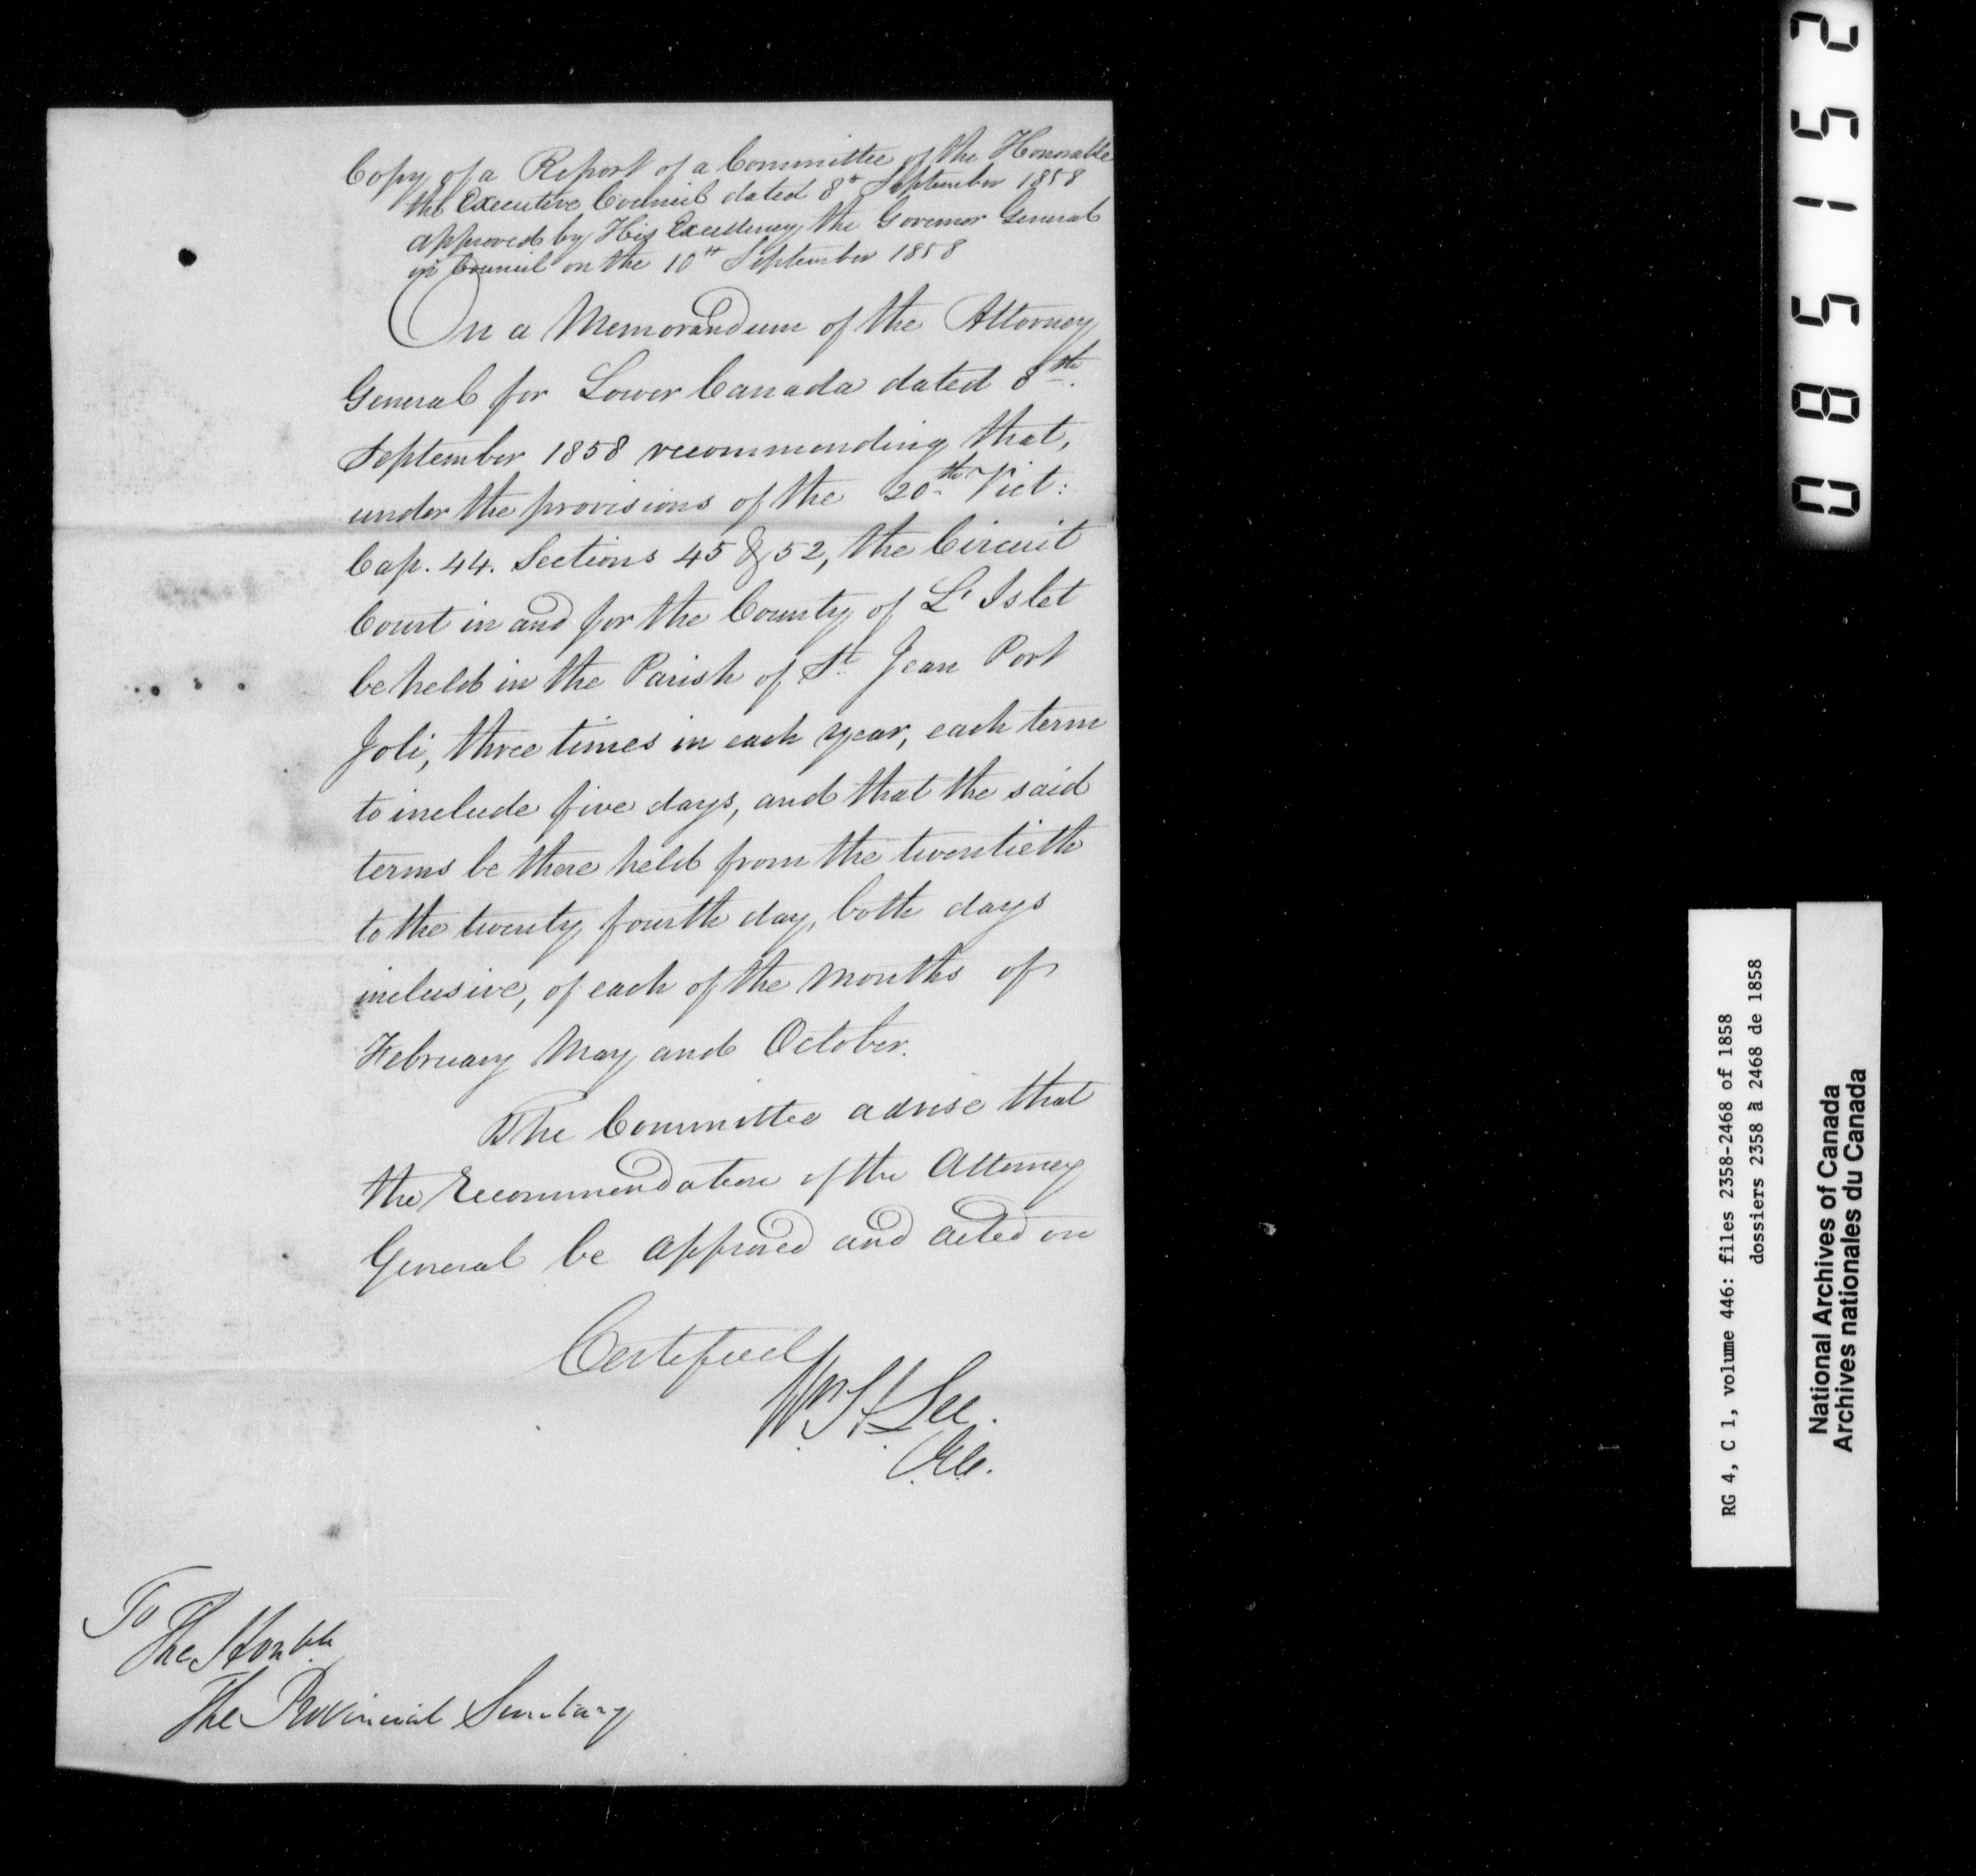 Copy of a Report of a Committee of the Honorable
the Executive Council dated 8th September 1858
approved by His Excellency the Governor General
in Council on the 10th September 1858
On a Memorandum of the Attorney
General for Lower Canada dated 8th.
September 1858 recommending that,
under the provisions of the 20th Vict:
Cap. 44. Sections 45 & 52, the Circuit
Court in and for the County of L'Islet
be held in the Parish of St. Jean Port
Joli, three times in each year, each term
to include five days, and that the said
terms be there held from the twentieth
to the twenty fourth day, both days
inclusive, of each of the Months of
February May and October.
The Committee advise that
the Recommendation of the Attorney
General be approved and acted on
Certified
Wm H Lee.
C.E.C.
To
The Honble.
The Provincial Secretary
085152
RG 4, C 1, volume 446: files 2358-2468 of 1858
dossiers 2358 à 2468 de 1858
National Archives of Canada
Archives nationales du Canada